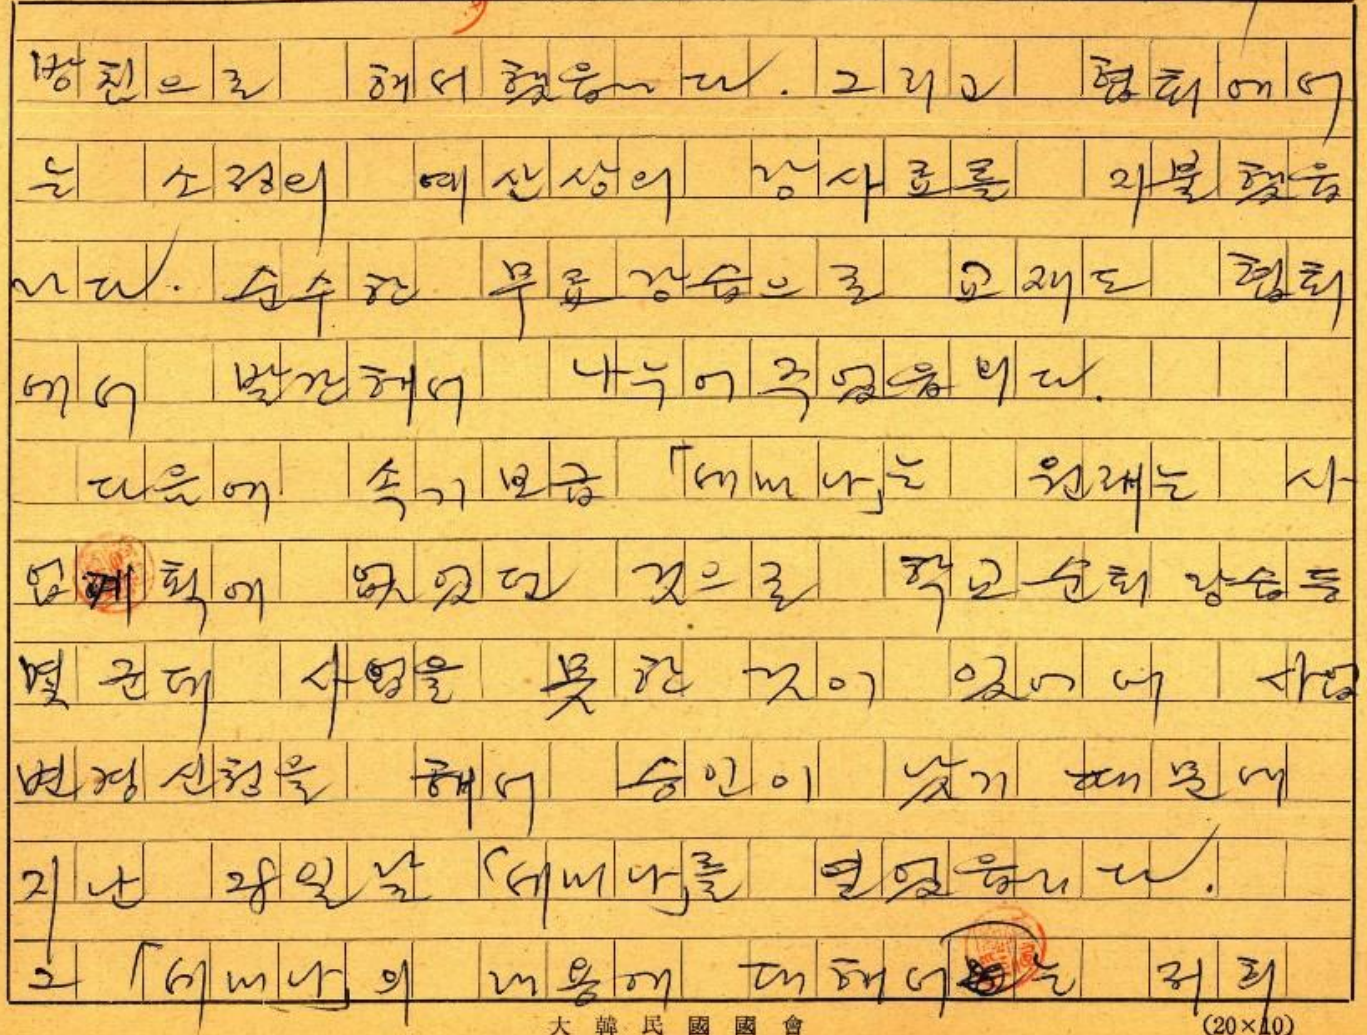 방침으로 해서 했읍니다. 그리고 협회에서
는 소정의 예산상의 강사료를 지불했읍
니다. 순수한 무료강습으로 교재도 협회
에서 발간해서 나누어 주었읍니다.
다음에 속기보급 「세미나」는 원래는 사
업계획에 없었던 것으로 학교순회 강습등
몇 군데 사업을 못한 것이 있어서 사업
변경신청을 해서 승인이 났기 때문에
지난 28일날 「세미나」를 열었읍니다.
그 「세미나」의 내용에 대해서는 저희
大韓民國國會
(20×10)